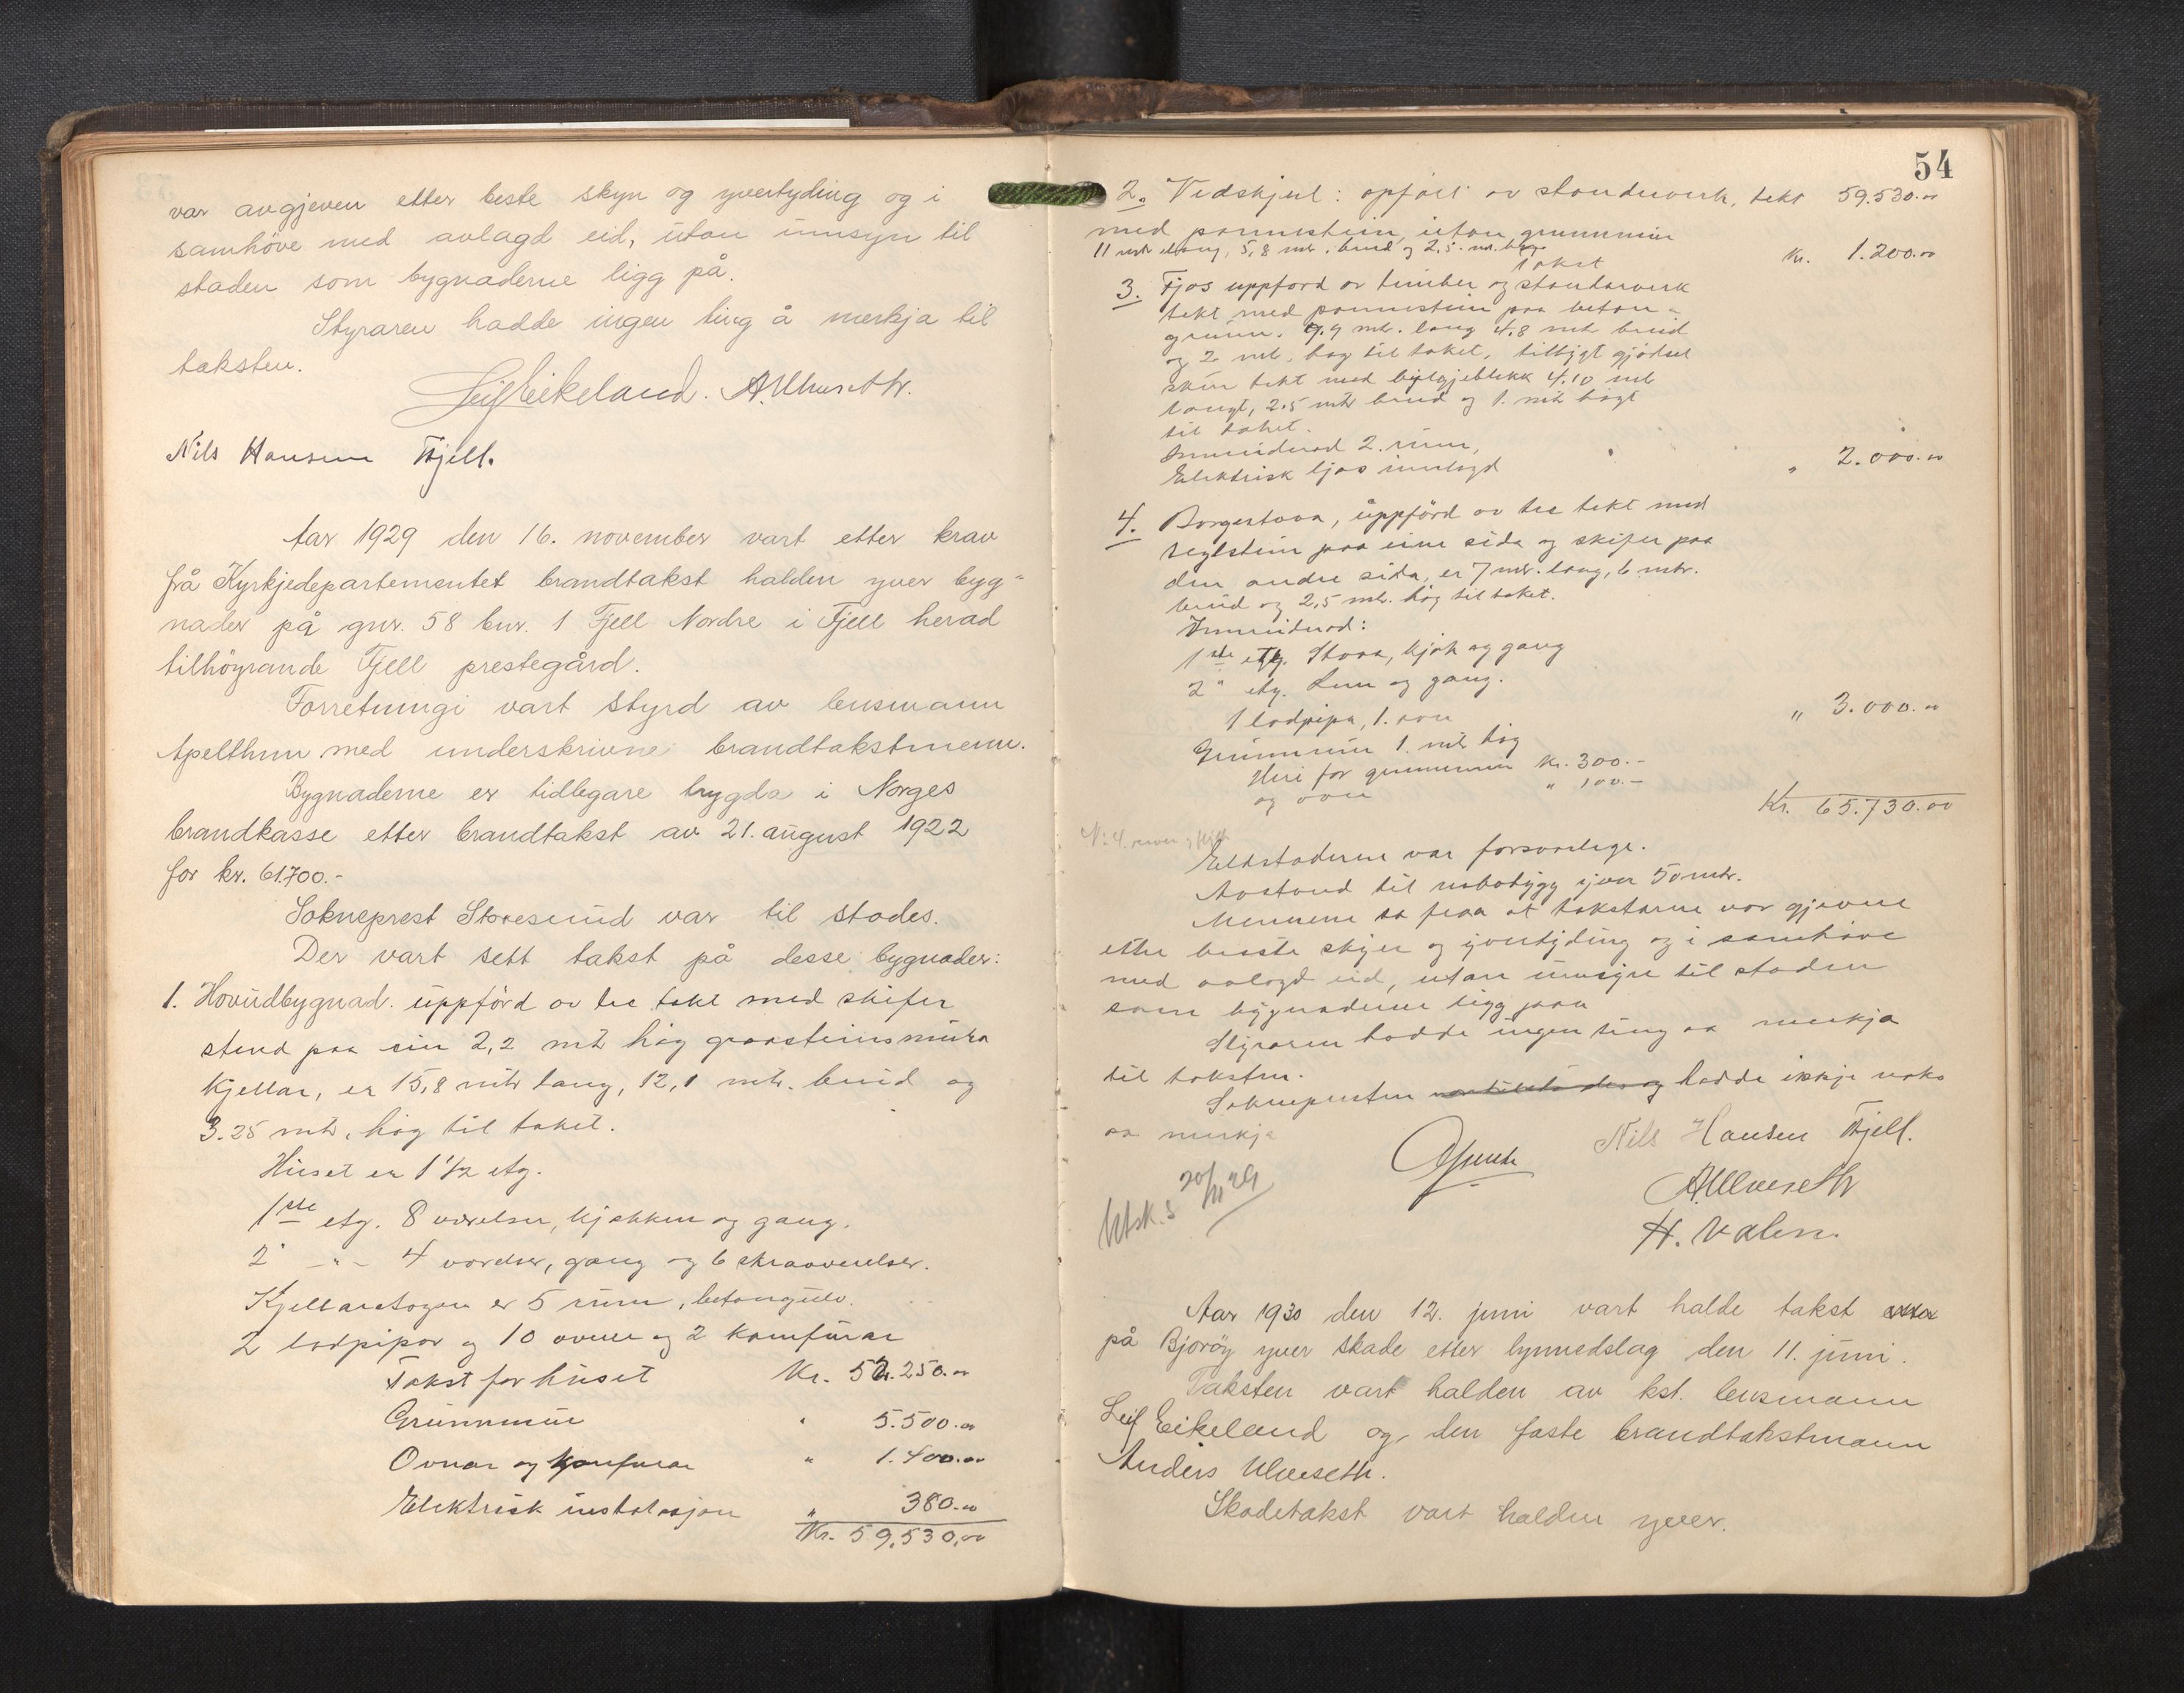 var avgjeven etter beste skyn og yvertyding og i
samhöve med avlagd eid, utan innsyn til
staden som bygnaderne ligg på.
Styraren hadde ingen ting å merkja til
taksten.
Leif Eikeland. A. Ulveseth.
Nils Hansen Fjell.
Aar 1929 den 16. november vart etter krav
frå Kyrkjedepartementet brandtakst halden yver byg-
nader på gnr. 58 bnr. 1 Fjell Nordre i Fjell herad
tilhöyrande Fjell prestegård.
Forretningi vart styrd av lensmann
Apelthun med underskrivne brandtakstmenn.
Bygnaderne er tidlegare trygda i Norges
brandkasse etter brandtakst av 21. august 1922
for kr. 61.700.-
Sokneprest Storesund var til stades.
Der vart sett takst på desse bygnader:
1. Hovudbygnad. uppförd av tre tekt med skifer
stend paa ein 2,2 mtr høg graasteinsmura
kjellar, er 15,8 mtr lang, 12,1 mtr. breid og
3.25 mtr, høg til taket.
Huset er 1 1/2 etg.
1ste etg. 8 værelser, kjøkken og gang.
2" -"- 4 værelser, gang og 6 skraaverelser.
Kjellaretagen er 5 rum, betongulv.
2 lodpipor og 10 ovner og 2 komfurar
Takst for huset Kr. 52.250.00
Grunnmur " 5.500.00
Ovnar og komfurar " 1.400.00
Elektrisk instalasjon " 380.00
Kr. 59.530,00
54
2. Vedskjul: opfört av standerverk, tekt 59.530.00
med pannestein, utan grunnmur
11 mtr lang, 5,8 mtr. breid og 2,5 mtr. høg.
Takst Kr. 1.200.00
3. Fjos uppførd av timber og standarverk
tekt med pannestein paa beton-
grunn. 9.9 mtr. lang 4.8 mtr breid
og 2 mtr. høg til taket, tilbygt gjödsel
skur tekt med bylgjeblekk 4.10 mtr
langt, 2.5 mtr breid og 1. mtr høgt
til taket.
Innreidnad 2. rum,
Elektrisk ljos innlagd " 2.000.00
4. Borgestova, uppförd av tre tekt med
teglstein paa eine sida og skifer paa
den andre sida, er 7 mtr. lang, 6 mtr.
breid og 2,5 mtr. høg til taket.
Innreidnad:
1ste etg. Stova, kjøk og gang
2" etg. Lem og gang.
1 lodpipa, 1. ovn " 3.000.00
Grunnmur 1. mtr høg
Heri for grunnmur Kr. 300.-
og ovn " 100.-
Kr. 65.730.00
Nr 4.
Eldstaderne var forsvarlege.
Avstand til nabobygg yver 50 mtr.
Mennene sa fraa at takstarne var gjevne
etter beste skyn og yvertyding og i samhöve
med avlagd eid, utan innsyn til staden
som bygnaderne ligg paa
Styraren hadde ingen ting aa merkja
til taksten.
Soknepresten var tilstades og hadde ikkje noko
aa merkja
Nils Hansen Fjell.
A. Ulveseth
H. Valen.
Utsk. s 20/11 29
Aar 1930 den 12. juni vart halde takst
på Bjoröy yver skade etter lynnedslag den 11. juni.
Taksten vart halden av kst. lensmann
Leif Eikeland og den faste brandtakstmann
Anders Ulveseth.
Skadetakst vart halden yver.